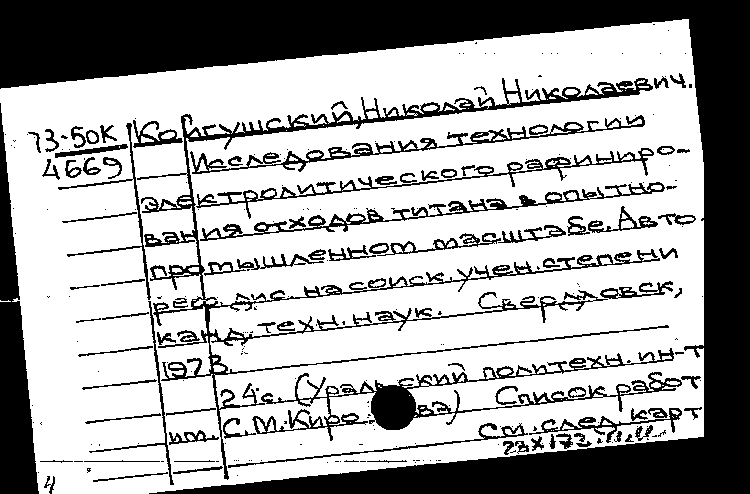 73-50К Койгушский, Николай Николаевич.
4669 Исследования технологии
электролитического рафиниро-
вания отходов титана в опытно-
промышленном масштабе. Авто-
реф. дис. на соиск. учен. степени
канд. техн. наук. Свердловск,
1973.
24 с. (Уральский политехн. ин-т
им. С.М. Кирова) Список работ
см. след. карт
4